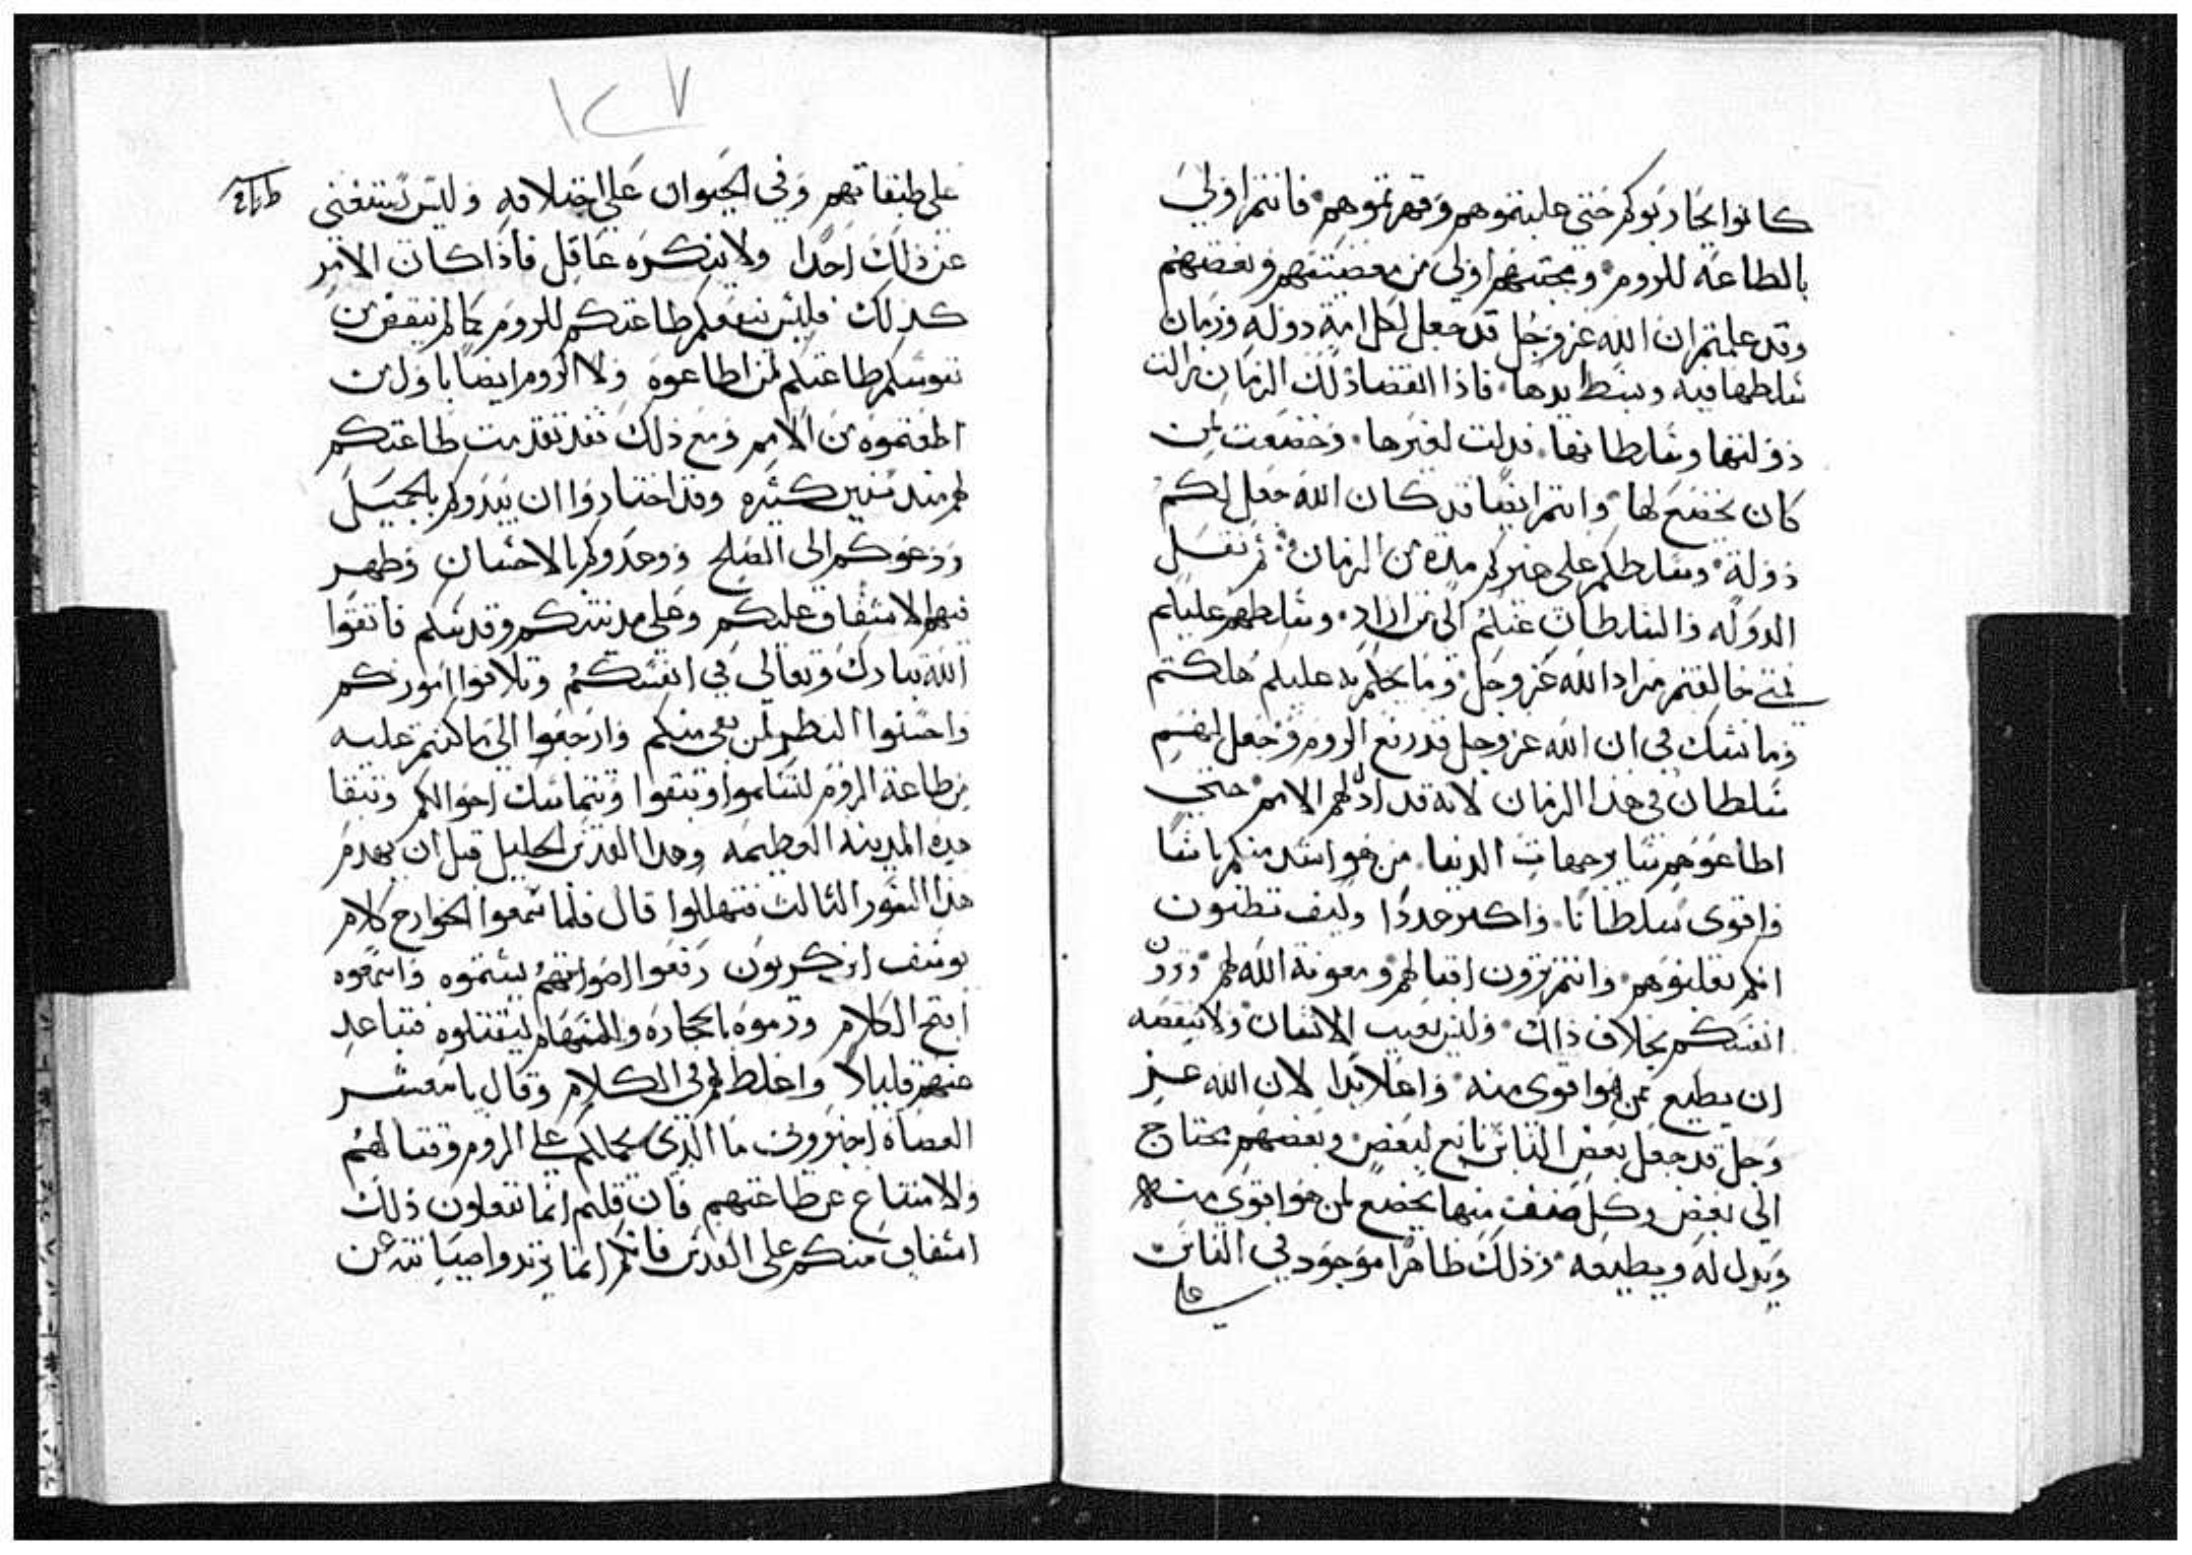 كانوا يحاربوكم حتى غلبتموهم وقهرتموهم فانتم اولى
بالطاعة للروم ومحبتهم اولى من معصيتهم وبغضهم
وقد علمتم ان الله عز وجل قد جعل لكل امة دولة وزمان
سلطها فيه وبسط يدها فاذا انقضا ذلك الزمان زالت
دولتها وسلطانها فدلت لغيرها وخضعت لمن
كان يخضع لها وانتم ايضا قد كان الله جعل لكم
دولة وسلطكم على غيركم مدة من الزمان ثم نقل
الدوله والسلطان عنكم الى من اراد وسلطهم عليكم
فمتى خالفتم مراد الله عز وجل وما حكم به عليكم هلكتم
وما نشك في ان الله عز وجل قد رفع الروم وجعل لهم
سلطان في هذا الزمان لانه قد اذل لهم الامم حتى
اطاعوهم سايرجهات الدنيا من هو اشد منكم باسا
واقوى سلطانا واكثر عددا وكيف تظنون
انكم تغلبوهم وانتم ترون اقبالهم ومعونة الله لهم وترون
انفسكم بخلاف ذلك وليس يعيب الانسان ولا ينقصه
ان يطيع لمن هوا قوى منه واعلا يدا لان الله عز
وجل قد جعل بعض الناس تابع لبعض وبعضهم يحتاج
الى بعض وكل صنف منها يخضع لمن هوا قوى منه
ويدل له ويطيعه وذلك ظاهرا موجود في الناس
على
١٢٧
على طبقاتهم وفي الحيوان على اختلافه وليس يستغنى
عن ذلك احدا ولا ينكره عاقل فاذا كان الامر
كذلك فليس تنقصكم طاعتكم للروم كما لم تنقص من
تقدمكم طاعتكم لمن اطاعوه ولا الروم ايضا باول من
اطعتموه من الامم ومع ذلك فقد تقدمت طاعتكم
لهم منذ سنين كثيره وقد اختاروا ان يبدوكم بالجميل
ودعوكم الى الصلح ووعدوكم بالاحسان وظهر
فيهم الاشفاق عليكم وعلى مدينتكم وقدسكم فاتقوا
الله تبارك وتعالى في انفسكم وتلافوا اموركم
واحسنوا النظر لمن بقى منكم وارجعوا الى ما كنتم عليه
من طاعة الروم لتسلموا وتبقوا وتتماسك احوالكم وتبقا
هذه المدينه العظيمه وهذا القدس الجليل قبل ان يهدم
هذا السور الثالث فتهلكوا قال فلما سمعوا الخوارج كلام
يوسف ابن كريون رفعوا اصواتهم بشتموه واسمعوه
اقبح الكلام ورموه بالحجاره والسهام ليقتلوه فتباعد
عنهم قليلا واغلظ لهم في الكلام وقال يا معشر
العصاه اخبروني ما الذي يحملكم على الروم وقتالهم
والامتناع عن طاعتهم فان قلتم انما تفعلون ذلك
اشفاق منكم على القدس فانكم انما تريدوا صيانته عن